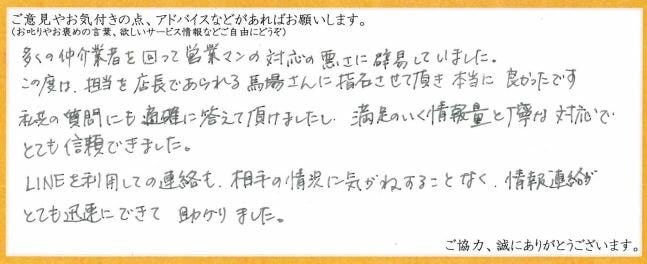 ご意見やお気付きの点、アドバイスなどがあればお願いします。
(お叱りやお褒めの言葉、欲しいサービス情報などご自由にどうぞ)
多くの仲介業者を回って営業マンの対応の悪さに辟易していました。
この度は、担当を店長であられる馬場さんに指名させて頂き本当に良かったです
私共の質問にも適確に答えて頂けましたし、満足のいく情報量と丁寧な対応で
とても信頼できました。
LINEを利用しての連絡も、相手の情況に気がねすることなく、情報連絡が
とても迅速にできて助かりました。
ご協力、誠にありがとうございます。